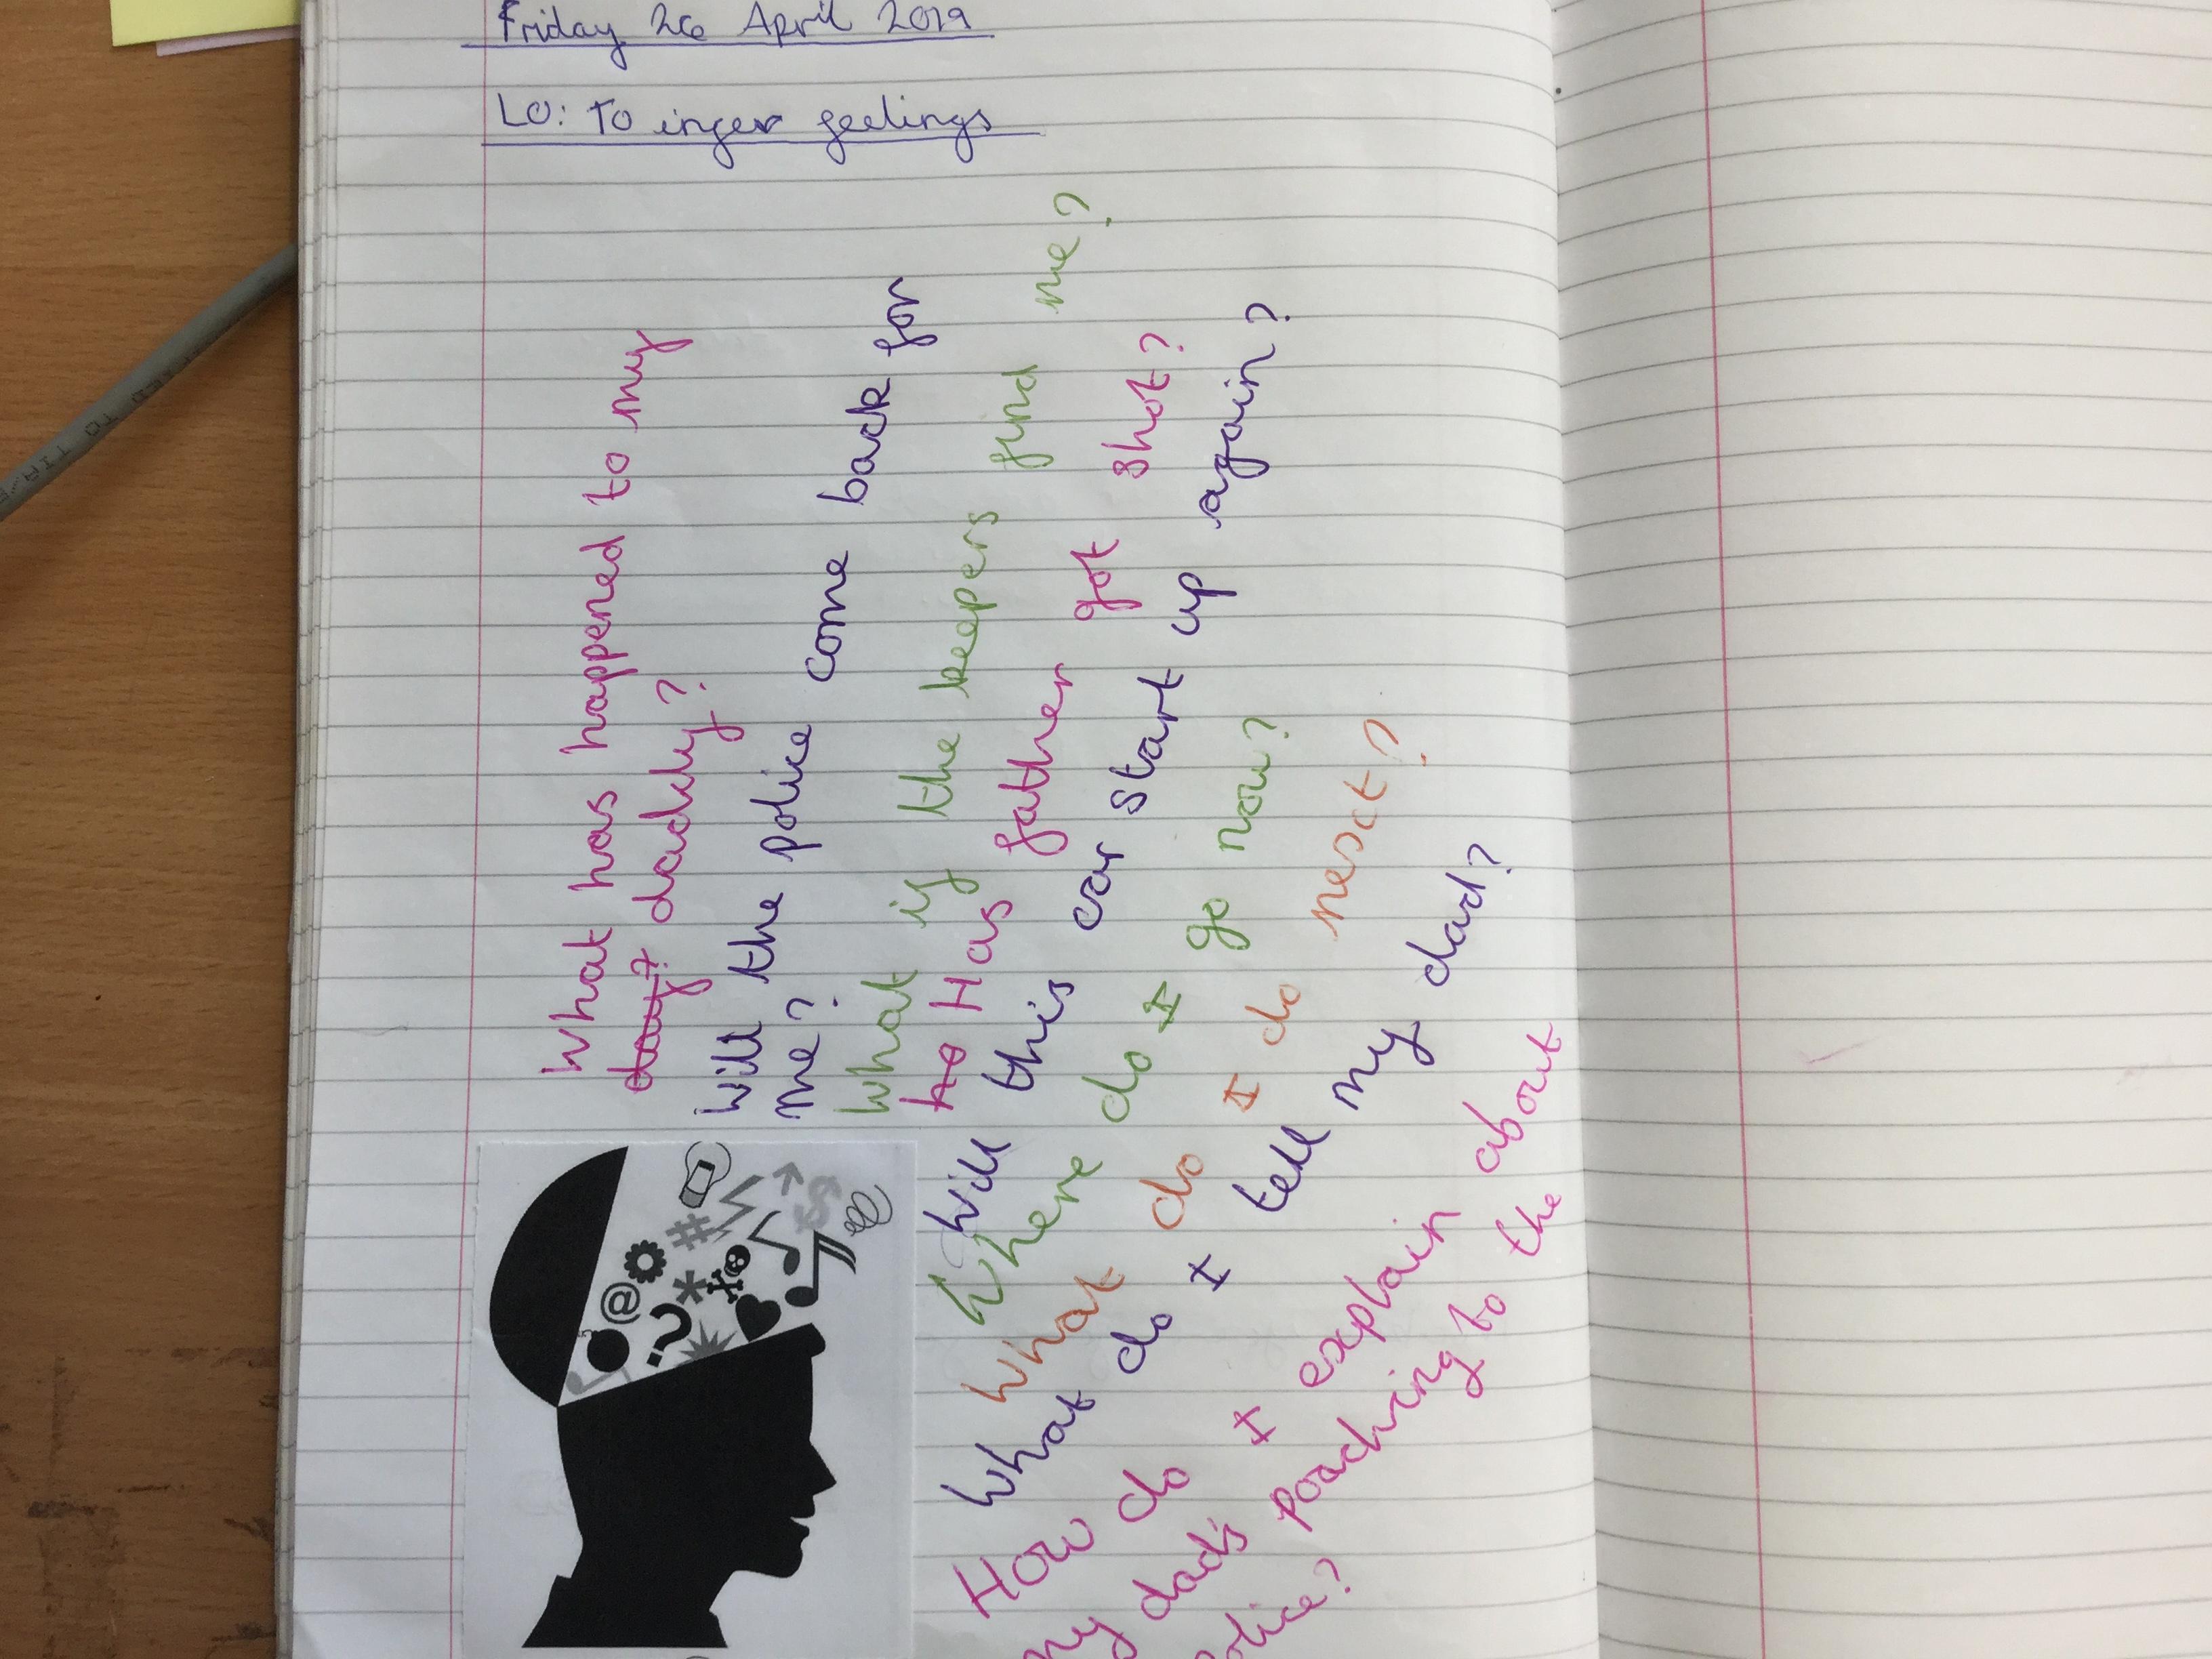 Friday 26 April 2019
LO: To infer feelings
What has happened to my
daddy?
Will the police come back for
me?
What if the keepers find me?
Has father got shot?
Will this car start up again?
Where do I go now?
What do I do next?
What do I tell my dad?
How do I explain about
my dad's poaching to the
police?
@
#
*
?
$